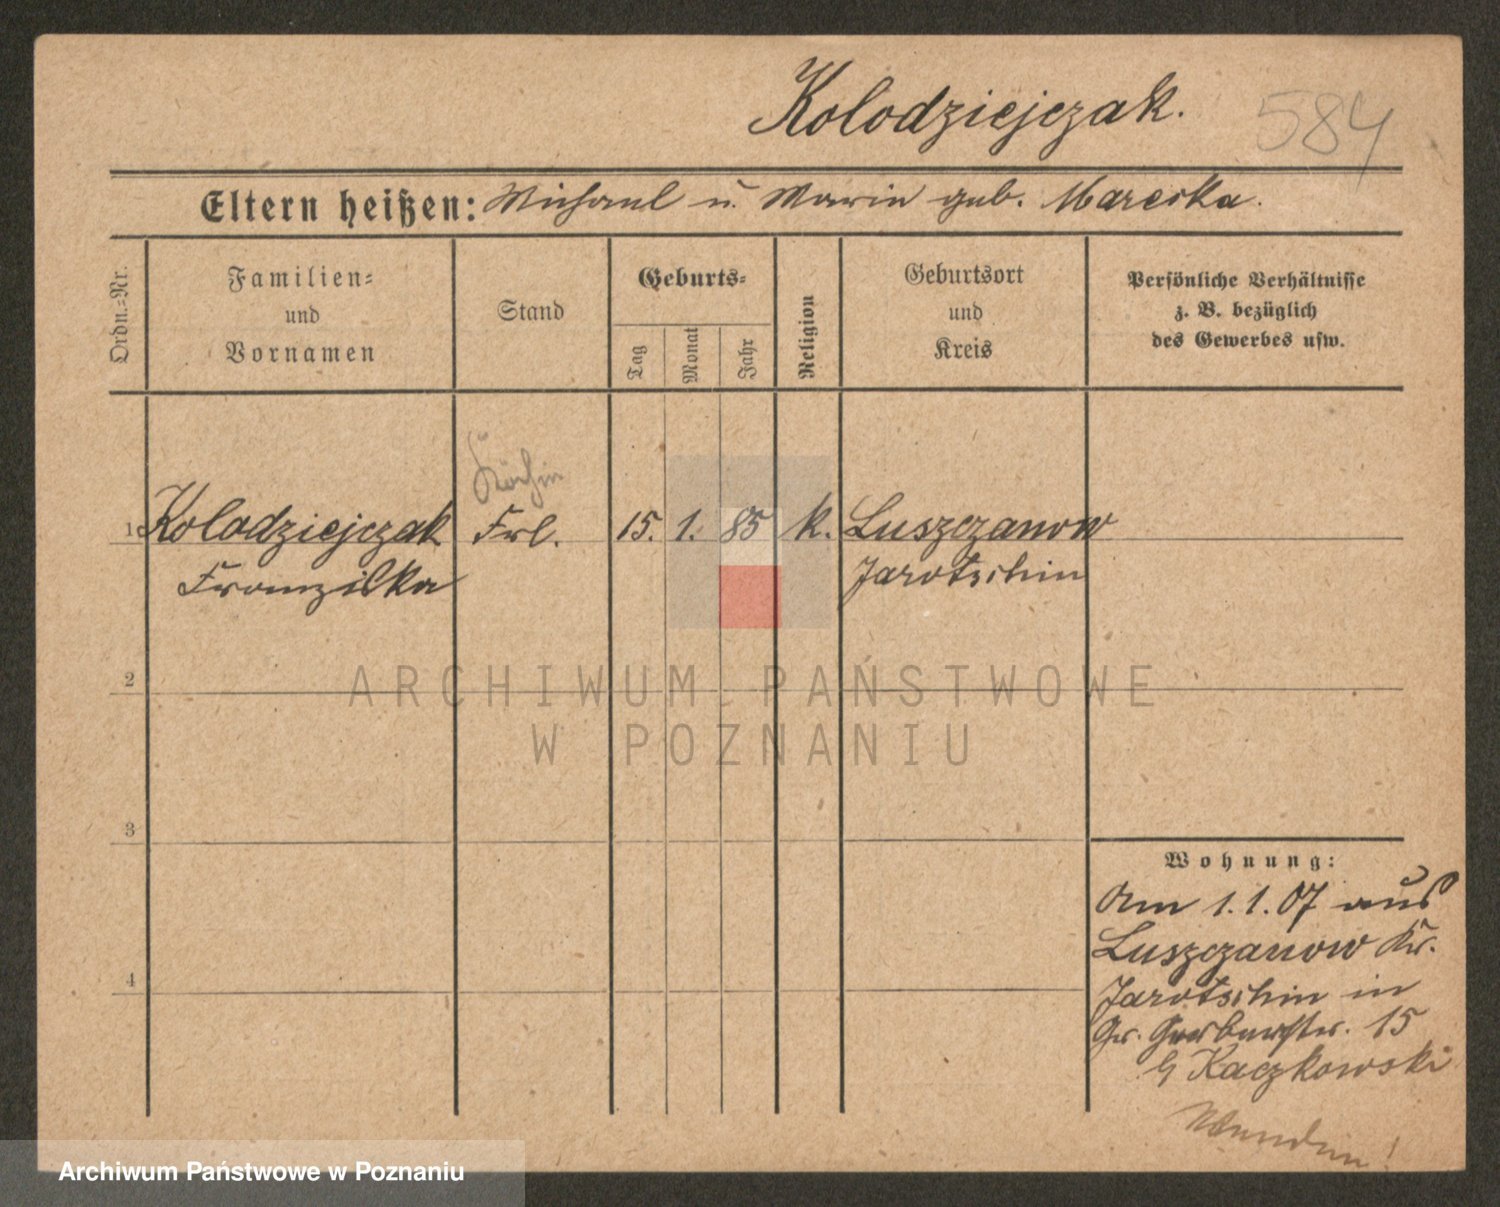 Kolodziejczak.
584
Eltern heißen: Michael u. Marie geb. Marcska.
Ordn.-Nr.
Familien-
und
Vornamen
Stand
Geburts-
Tag
Monat
Jahr
Religion
Geburtsort
und
Kreis
Persönliche Verhältnisse
z. B. bezüglich
des Gewerbes usw.
Köchin
1 Kolodziejczak Frl. 15. 1. 85 k. Luszczanow
Franziska Jarotschin
2
ARCHIWUM PAŃSTWOWE
W POZNANIU
3
Wohnung:
Am 1.1.07 aus
Luszczanow Kr.
4
Jarotschin in
Gr. Gerberstr. 15
b Kaczkowski
Wenden!
Archiwum Państwowe w Poznaniu